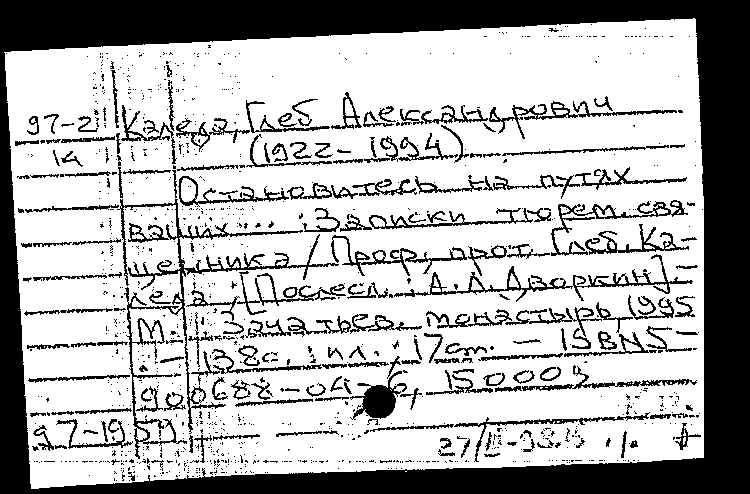 97-2 Каледа, Глеб Александрович
1а (1922-1994)
Остановитесь на путях
ваших... : Записки тюрем. свя-
щенника / Проф., прот. Глеб. Ка-
леда ; [Послесл. : А.Л. Дворкин]. -
М. : Зачатьев. монастырь, 1995
. - 138с. : ил. ; 17см. - ISBN5-
900688-04-6, 15000э
97-1959
27/III-98.